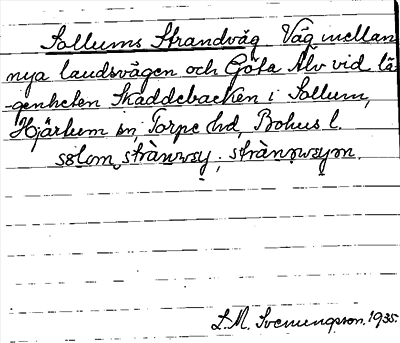 Sollums Strandväg Väg mellan
nya landsvägen och Göta Älv vid lä-
-genheten Skaddebacken i Sollum,
Hjärtum sn, Torpe hd, Bohus l.
L.M. Svenungsson. 1935.